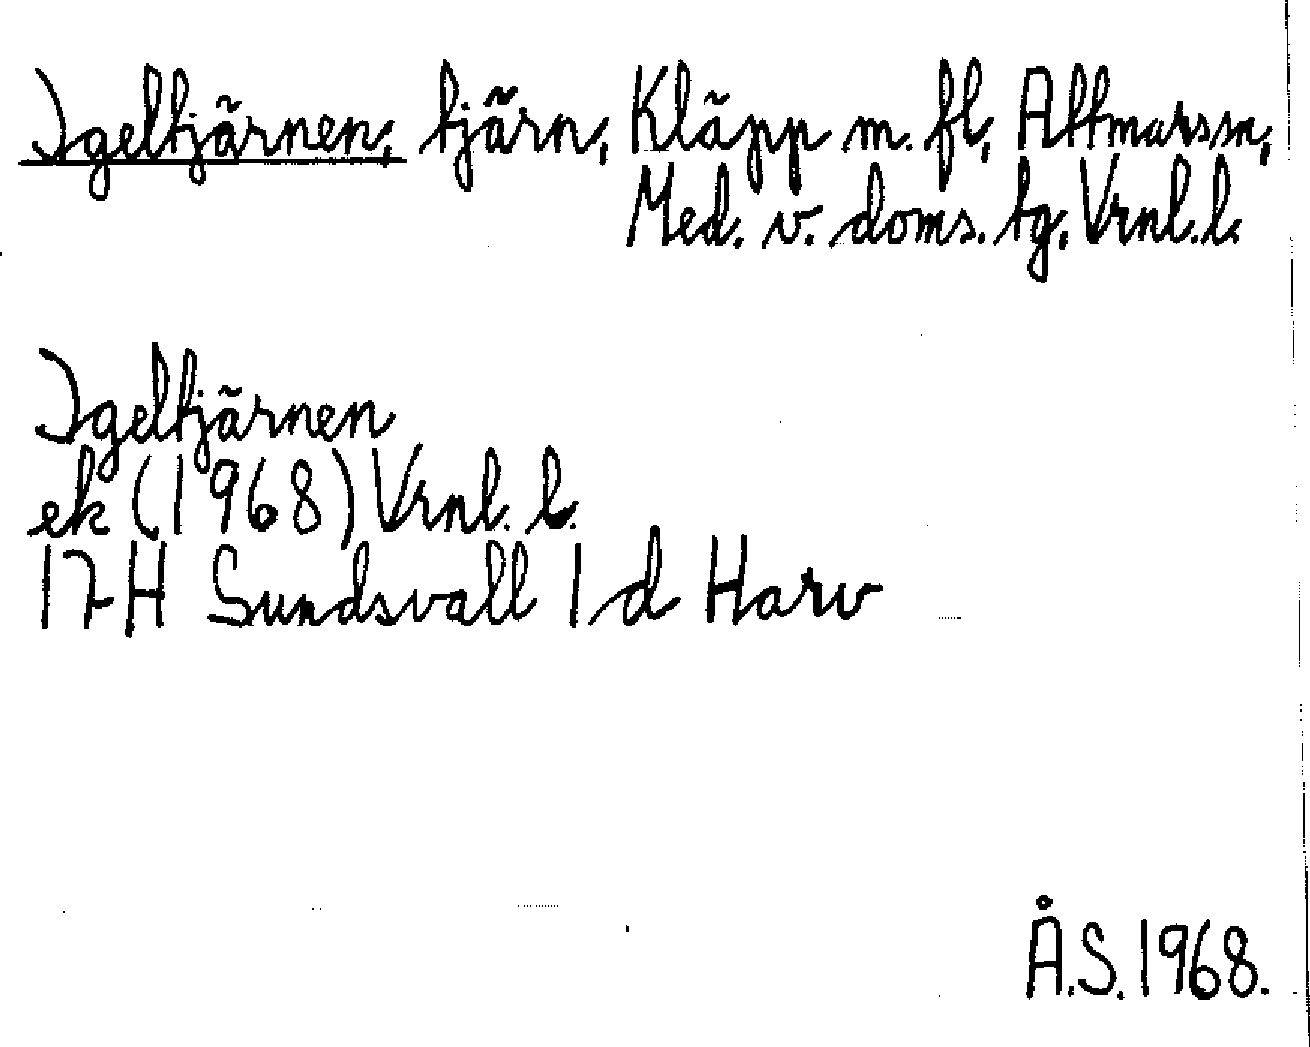 Igeltjärnen, tjärn, Kläpp m. fl, Attmars sn,
Med. v. doms. tg. Vrnl. l.
Igeltjärnen
ek (1968) Vrnl. l.
17H Sundsvall 1 d Harv
Å.S. 1968.